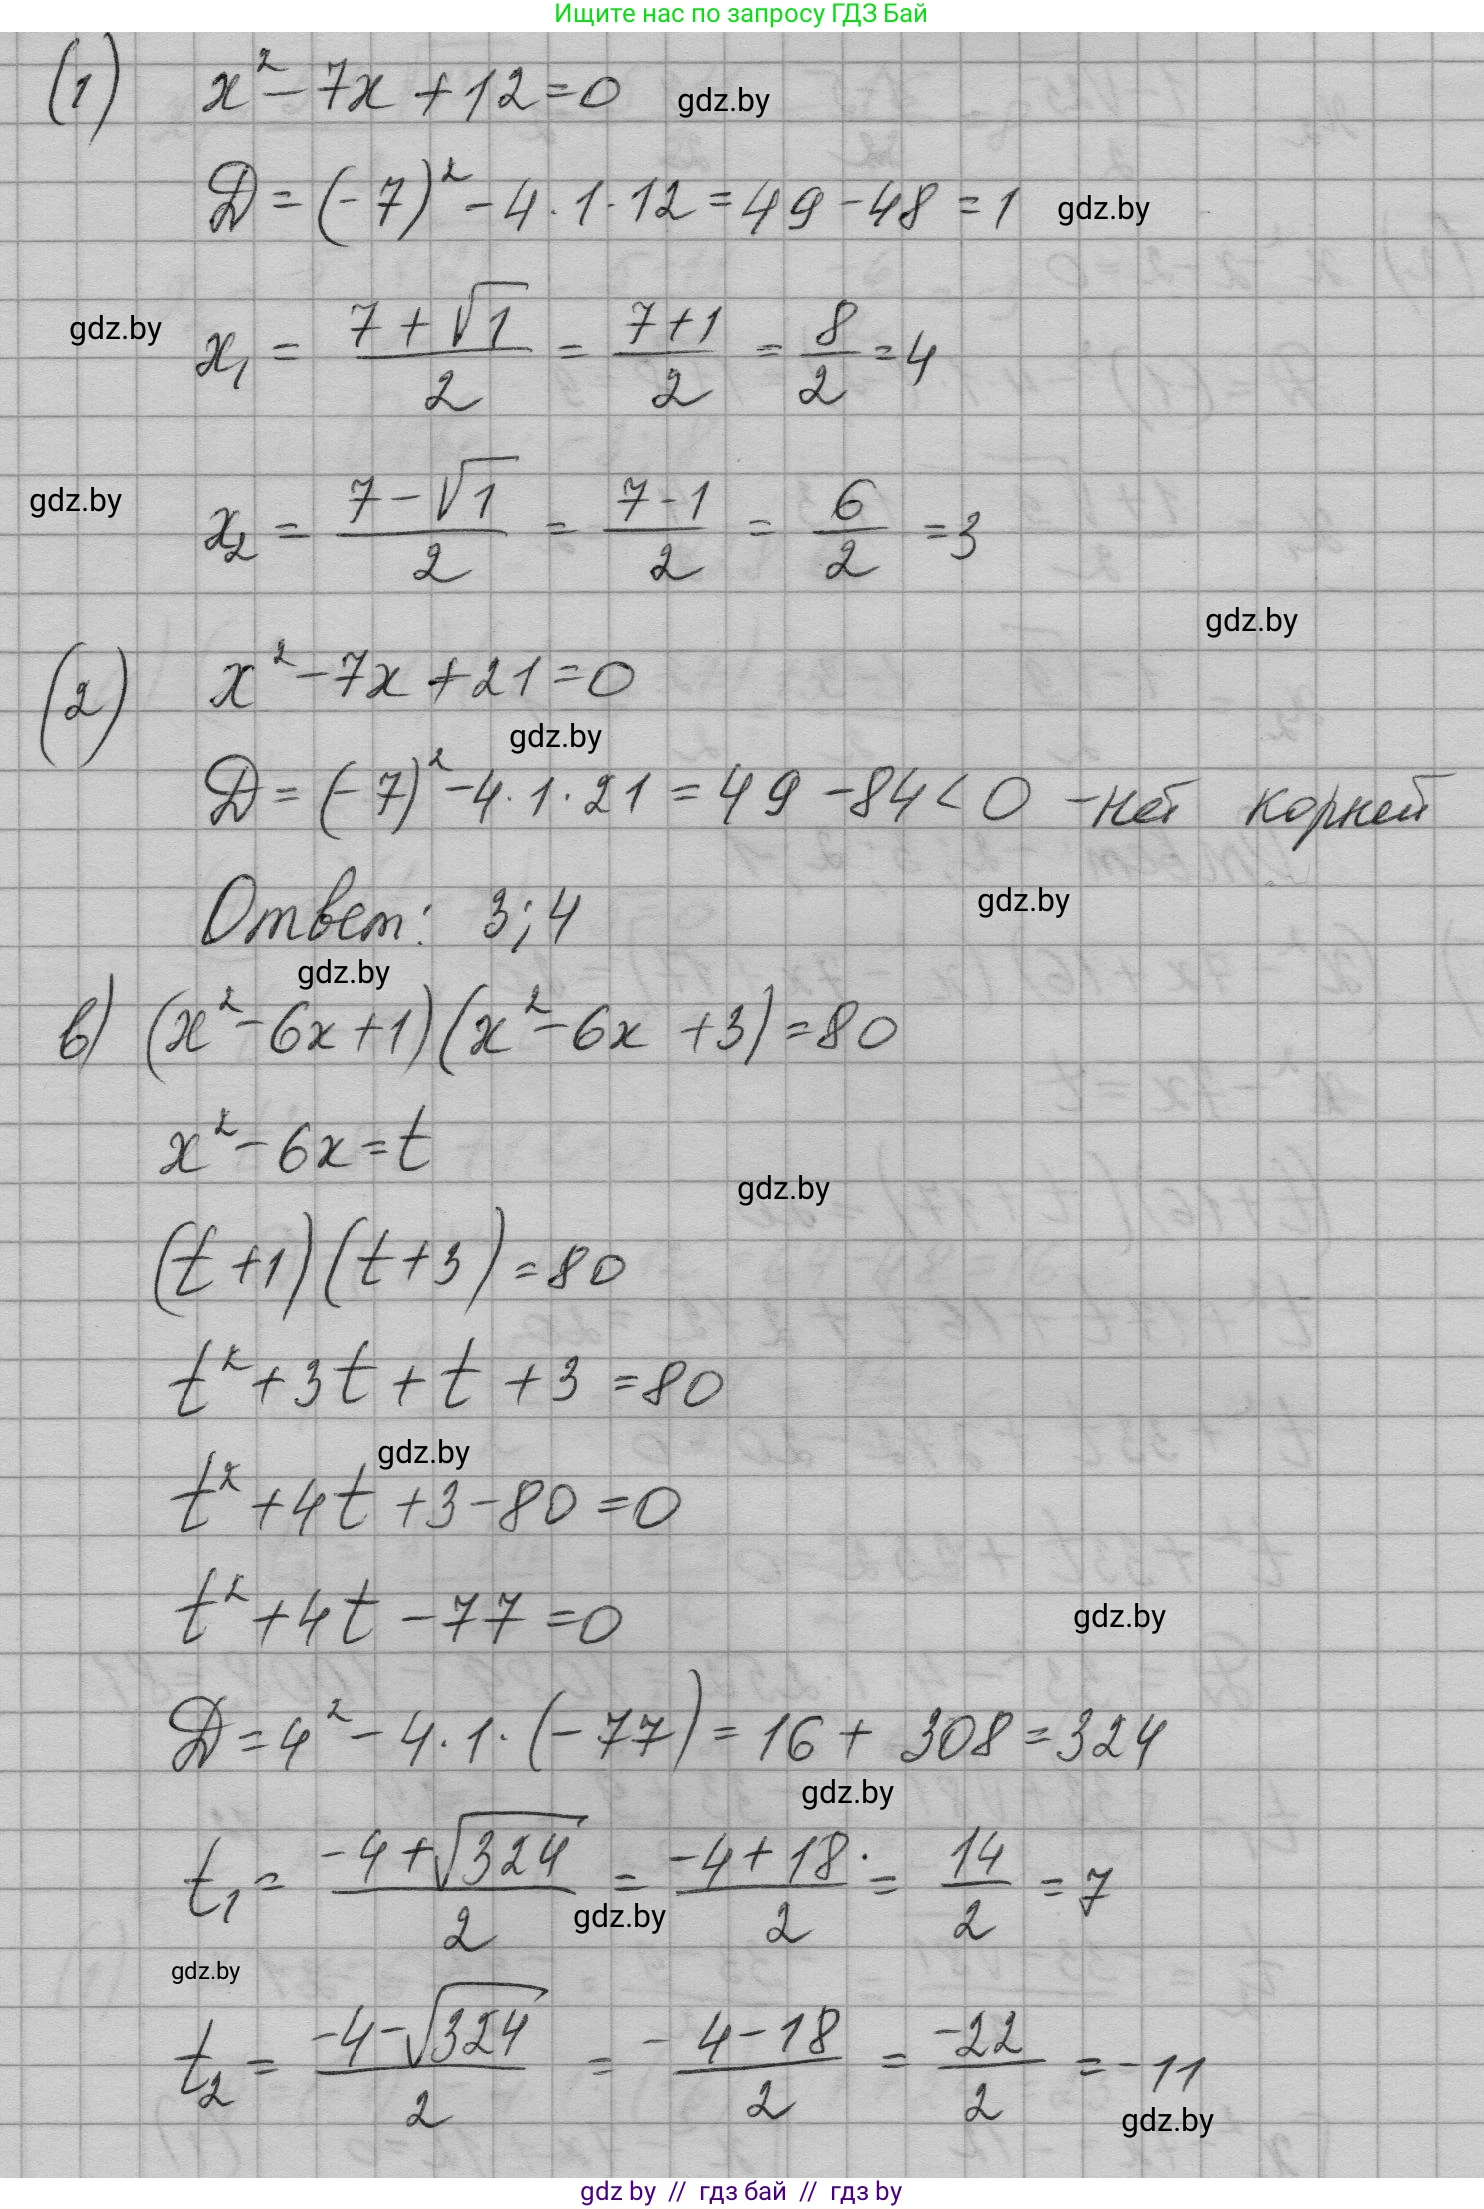 Ищите нас по запросу ГДЗ Бай
(1) x² - 7x + 12 = 0 gdz.by
D = (-7)² - 4 · 1 · 12 = 49 - 48 = 1 gdz.by
gdz.by x₁ = (7 + √1)/2 = (7+1)/2 = 8/2 = 4
gdz.by x₂ = (7 - √1)/2 = (7-1)/2 = 6/2 = 3
gdz.by
(2) x² - 7x + 21 = 0
gdz.by
D = (-7)² - 4 · 1 · 21 = 49 - 84 < 0 - нет корней
Ответ: 3; 4 gdz.by
gdz.by
в) (x² - 6x + 1)(x² - 6x + 3) = 80
x² - 6x = t
gdz.by
(t + 1)(t + 3) = 80
t² + 3t + t + 3 = 80
gdz.by
t² + 4t + 3 - 80 = 0
t² + 4t - 77 = 0 gdz.by
D = 4² - 4 · 1 · (-77) = 16 + 308 = 324
gdz.by
t₁ = (-4 + √324)/2 = (-4 + 18)/2 = 14/2 = 7
gdz.by
gdz.by
t₂ = (-4 - √324)/2 = (-4 - 18)/2 = -22/2 = -11
gdz.by
gdz by // гдз бай // гдз by